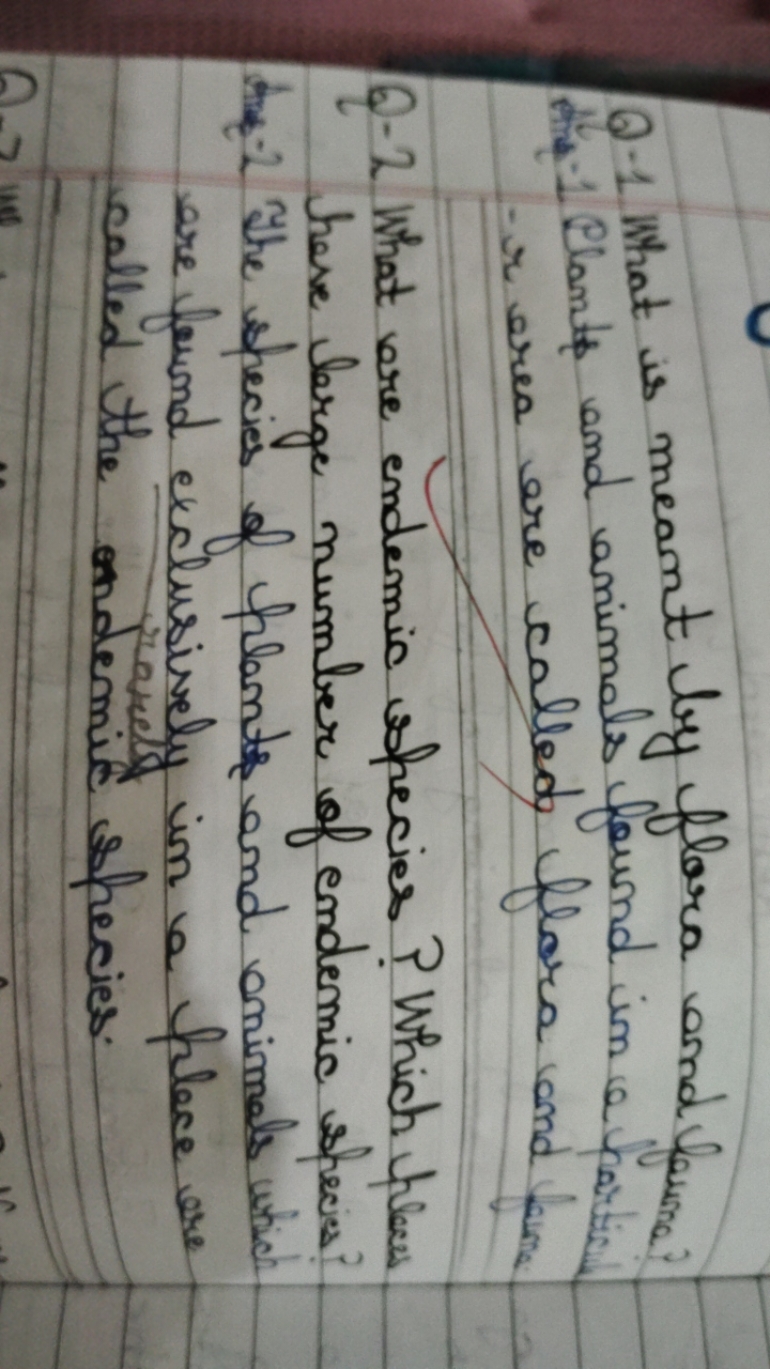 Q-1 What is meant by flora and fauna?
Ans-1 Plants and animals found in a particul
-ar area are called flora and fauna.
Q-2 What are endemic species? Which places
have large number of endemic species?
Ans-2 The species of plants and animals which
are found exclusively in a place are
rarely
called the endemic species.
Q-3